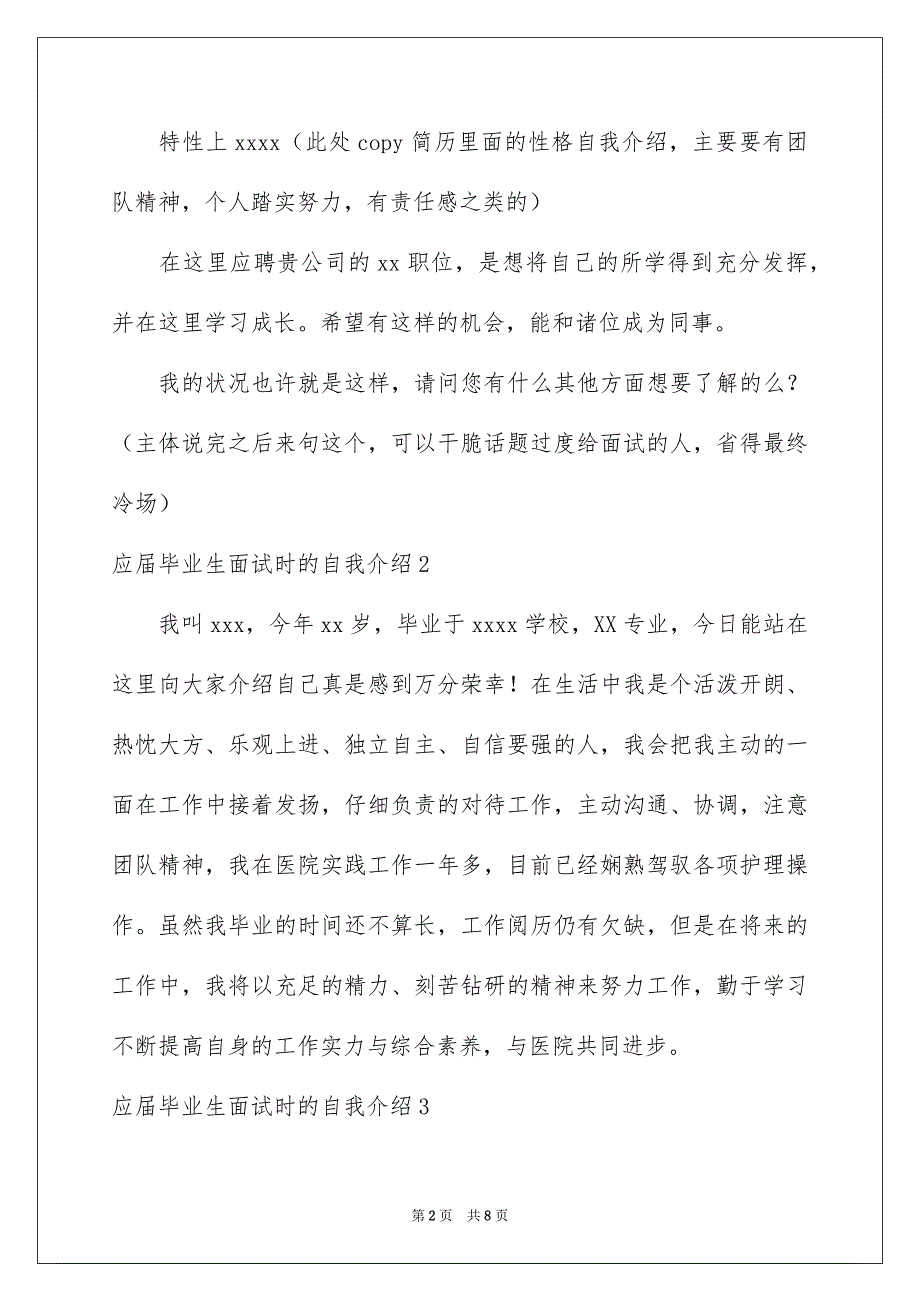 特性上 xxxx（此处 copy 简历里面的性格自我介绍，主要要有团
队精神，个人踏实努力，有责任感之类的）
在这里应聘贵公司的 xx 职位，是想将自己的所学得到充分发挥，
并在这里学习成长。希望有这样的机会，能和诸位成为同事。
我的状况也许就是这样，请问您有什么其他方面想要了解的么？
（主体说完之后来句这个，可以干脆话题过度给面试的人，省得最终
冷场）
应届毕业生面试时的自我介绍 2
我叫 xxx，今年 xx 岁，毕业于 xxxx 学校，XX 专业，今日能站在
这里向大家介绍自己真是感到万分荣幸！在生活中我是个活泼开朗、
热忱大方、乐观上进、独立自主、自信要强的人，我会把我主动的一
面在工作中接着发扬，仔细负责的对待工作，主动沟通、协调，注意
团队精神，我在医院实践工作一年多，目前已经娴熟驾驭各项护理操
作。虽然我毕业的时间还不算长，工作阅历仍有欠缺，但是在将来的
工作中，我将以充足的精力、刻苦钻研的精神来努力工作，勤于学习
不断提高自身的工作实力与综合素养，与医院共同进步。
应届毕业生面试时的自我介绍 3
第 2 页 共 8 页